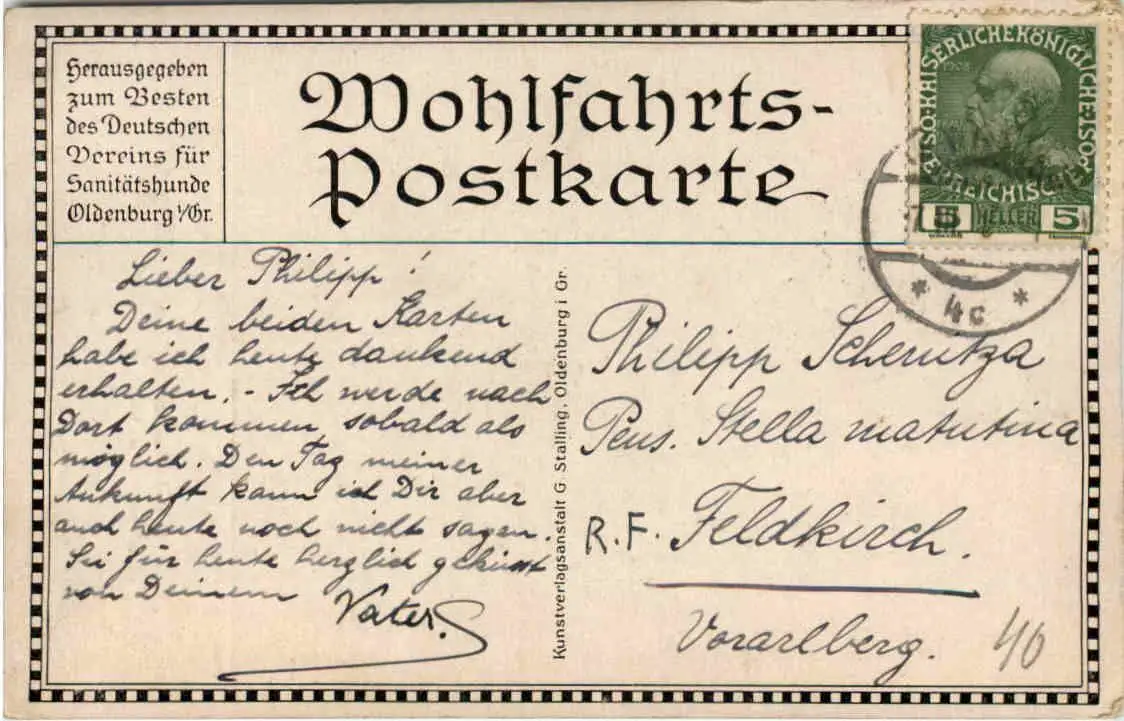 Herausgegeben
zum Besten
des Deutschen
Vereins für
Sanitätshunde
Oldenburg i/Gr.
Wohlfahrts-
Postkarte
KAISERLICHE KÖNIGLICHE ÖSTERREICHISCHE
1908
5 HELLER 5
* 4c *
Lieber Philipp!
Deine beiden Karten
habe ich heute dankend
erhalten. - Ich werde nach
Dort kommen sobald als
möglich. Den Tag meiner
Ankunft kann ich Dir aber
auch heute noch nicht sagen.
Sei für heute herzlich geküsst
von Deinem Vater.
Kunstverlagsanstalt G. Stalling, Oldenburg i Gr.
Philipp
Pens. Stella matutina
R.F. Feldkirch.
Vorarlberg.
40